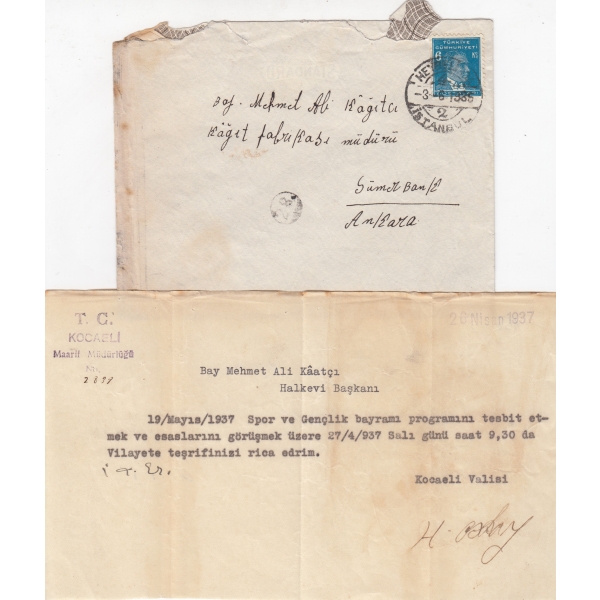 TÜRKİYE
CUMHURİYETİ
6 Kş
-3-6-1936
2
İSTANBUL
Bay. Mehmet Ali Kâğıtcı
Kâğıt fabrikası müdürü
Sümer Bank
Ankara
T. C.
KOCAELİ
Maarif Müdürlüğü
No.
Nisan 1937
Bay Mehmet Ali Kâatçı
Halkevi Başkanı
19/Mayıs/1937 Spor ve Gençlik bayramı programını tesbit et-
mek ve esaslarını görüşmek üzere 27/4/937 Salı günü saat 9,30 da
Vilayete teşrifinisi rica edrim.
Kocaeli Valisi